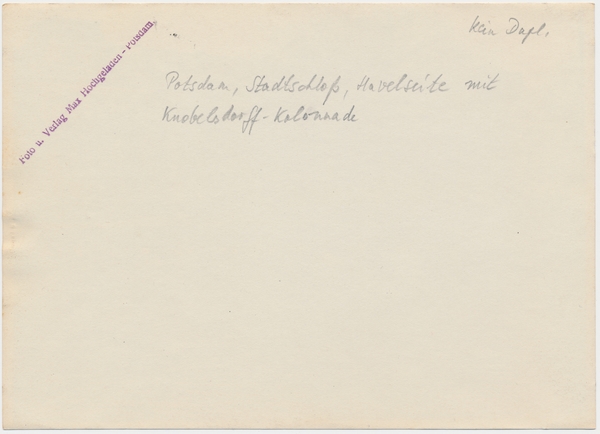 Kein Dupl.
Foto u. Verlag Max Hochgeladen - Potsdam,
Potsdam, Stadtschloß, Havelseite mit
Knobelsdorff-Kolonnade